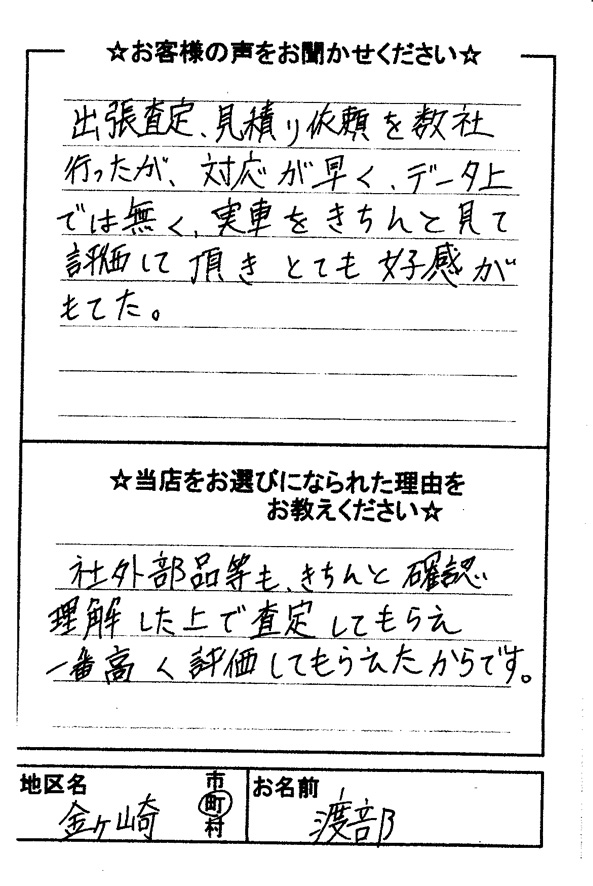 ☆お客様の声をお聞かせください☆
出張査定、見積り依頼を数社
行ったが、対応が早く、データ上
では無く、実車をきちんと見て
評価して頂きとても好感が
もてた。
☆当店をお選びになられた理由を
お教えください☆
社外部品等も、きちんと確認
理解した上で査定してもらえ
一番高く評価してもらえたからです。
地区名
金ヶ崎
市
町
村
お名前
渡部